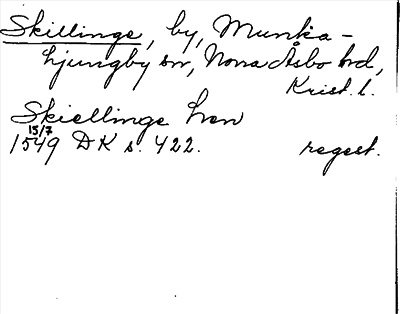 Skillinge, by, Munka-
Ljungby sn, Norra Åsbo hd,
Krist. l.
Skiellinge
15/7
1549 DK s. 422. regest.